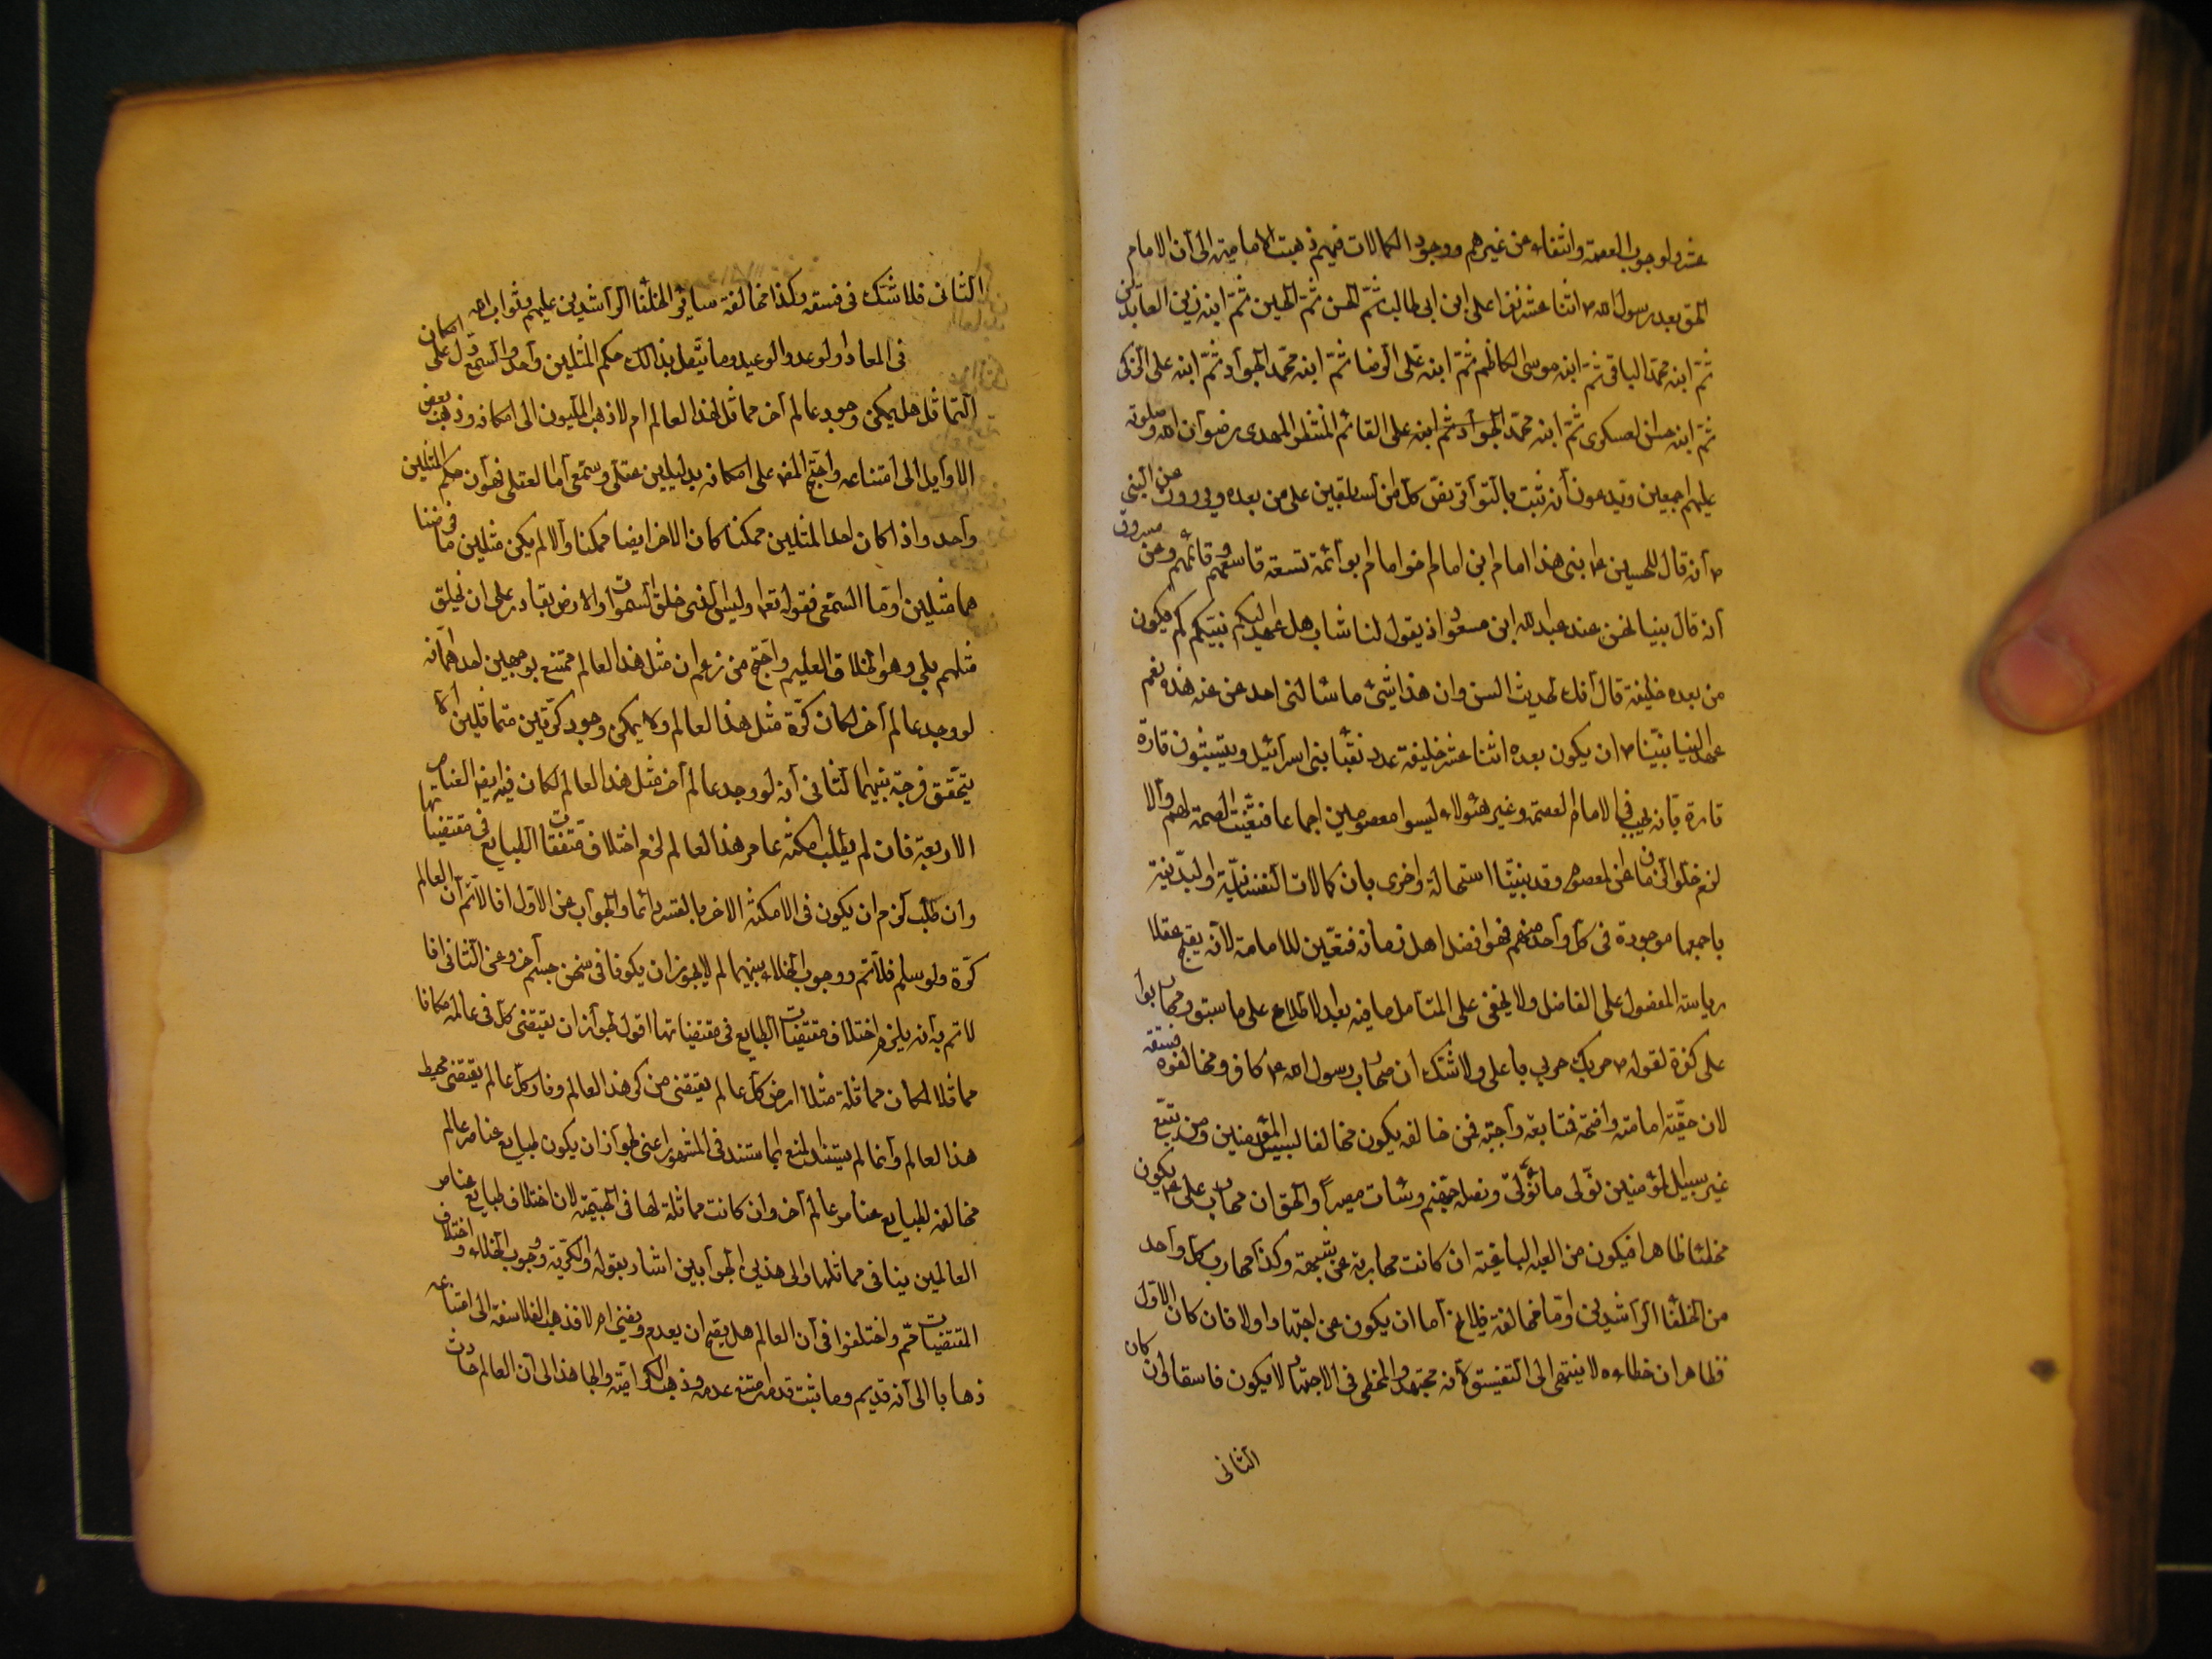 عشر لوجوب العصمة وانتفائه عن غيرهم ووجود الكمالات فيهم ذهبت الامامية الى ان الامام
الحق بعد رسول الله اثنا عشر نفرا على ابن ابى طالب ثم الحسن ثم الحسين ثم ابنه زين العابدين
ثم ابنه محمد الباقى ثم ابنه موسى الكاظم ثم ابنه على الرضا ثم ابنه محمد الجواد ثم ابنه على الزكى
ثم ابنه حسن العسكرى ثم ابنه محمد الجواد ثم ابنه على القائم المنتظر المهدى رضوان الله وصلوته
عليهم اجمعين ويدعون أنه ثبت بالتواتر نص كل من السابقين على من بعده ويروون عن النبى
أنه قال للحسين ابنى هذا امام ابن امام اخو امام ابو أئمة تسعة تاسعهم قائمهم وعن مسروق
أنه قال بينا نحن عند عبد الله ابن مسعود اذ يقول لنا شاب هل عهد اليكم نبيكم كم يكون
من بعده خليفة قال انك لحديث السن وان هذا شئ ما سالنى احد عن عنه هذه نعم
عهد الينا نبينا ان يكون بعده اثنا عشر خليفة عدد نقبا بنى اسرائيل ويتشبثون تارة
تارة بانه يجب فى الامام العصمة وغير هؤلاء ليسوا معصومين اجماعا فتعينت العصمة لهم والا
لزم خلو الزمان عن المعصوم وقد بينا استحالته واخرى بان كمالات النفسانية والبدنية
باجمعها موجودة فى كل واحد منهم فهو افضل اهل زمانه فتعين للامامة لانه يقبح عقلا
رياسة المفضول على الفاضل ولا يخفى على المتأمل ما فيه بعد الاطلاع على ما سبق ومحاربوا
على كفرة لقوله حربك حربى يا على ولا شك ان محارب رسول الله كافر ومخالفوه فسقة
لان حقية امامته واضحة فمتابعته واجبة فمن خالفه يكون مخالفا لسبيل المؤمنين ومن يتبع
غير سبيل المؤمنين نوله ما تولى ونصله جهنم وسائت مصيرا والحق ان محارب على يكون
مخطئا ظاهرا فيكون من الفئة الباغية ان كانت محاربة عن شبهة وكذا محارب كل واحد
من الخلفا الراشدين واما مخالفة فلا يخ اما ان يكون عن اجتهاد اولا فان كان الاول
فظاهر ان خطاءه لا ينتهى الى التفسيق لانه مجتهد والمخطى فى الاجتهاد لا يكون فاسقا وان كان
الثانى
الثانى فلا شك فى فسقه وكذا مخالفة سائر الخلفا الراشدين عليهم ثواب الله
فى المعاد والوعد والوعيد وما يتصل بذالك حكم المثلين واحد والسمع دل على امكان
التماثل هل يمكن وجود عالم آخر مماثل لهذا العالم ام لا ذهب المليون الى امكانه وذهب بعض
الاوايل الى امتناعه واحتج المص على امكانه بدليلين عقلى وسمعى أما العقلى فهو أن حكم المثلين
واحد واذا كان احد المثلين ممكنا كان الاخر ايضا ممكنا والا لم يكن مثلين ما فرضنا
هما مثلين واما السمعى فقوله تعه اوليس الذى خلق السموات والارض بقادر على ان يخلق
مثلهم بلى وهو الخلاق العليم واحتج من زعم ان مثل هذا العالم ممتنع بوجهين احدهما انه
لو وجد عالم آخر لكان كرة مثل هذا العالم ولا يمكن وجود كرتين متماثلين الا
يتحقق فرجة بينهما الثانى أنه لو وجد عالم آخر مثل هذا العالم لكان فيه ايضا العناصر
الاربعة فان لم يطلب امكنة عناصر هذا العالم لزم اختلاف متفقات الطبايع فى مقتضياتها
وان طلب لزم ان يكون فى الامكنة الاخر بالقسر دائما والجواب عن الاول انا لا نم أن العالم
كرة ولو سلم فلا نم ووجوب الخلاء بينهما لم لا يجوز ان يكونا فى ثخن جسم آخر وعن الثانى انا
لا نم به أنه يلزم اختلاف مقتضيات الطبايع فى مقتضياتها اقول لجواز ان يقتضى كل فى عالمه مكانا
مماثلا لمكان مماثلة مثلا ارض كل عالم يقتضى مركز هذا العالم ونار كل عالم يقتضى محيط
هذا العالم وانما لم يستند المنع بما استند فى المشهور اعنى لجواز ان يكون طبايع عناصر عالم
مخالفه لطبايع عناصر عالم آخر وان كانت مماثلة لها فى الجسمية لان اختلاف طبايع عناصر
العالمين ينافى مماثلها والى هذين الجوابين اشار بقوله والكرية ووجوب الخلاء واختلاف
المقتضيات مم واختلفوا فى أن العالم هل يصح ان يعدم ويفنى ام لا فذهب الفلاسفة الى امتناعه
ذهابا الى أنه قديم وما ثبت قدمه امتنع عدمه وذهب الكرامية والجاحظ الى أن العالم حادث